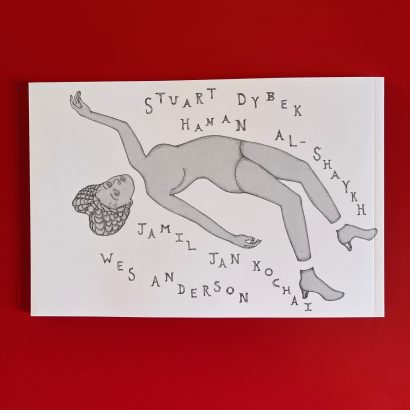 STUART DYBEK
HANAN AL-SHAYKH
JAMIL JAN KOCHAI
WES ANDERSON